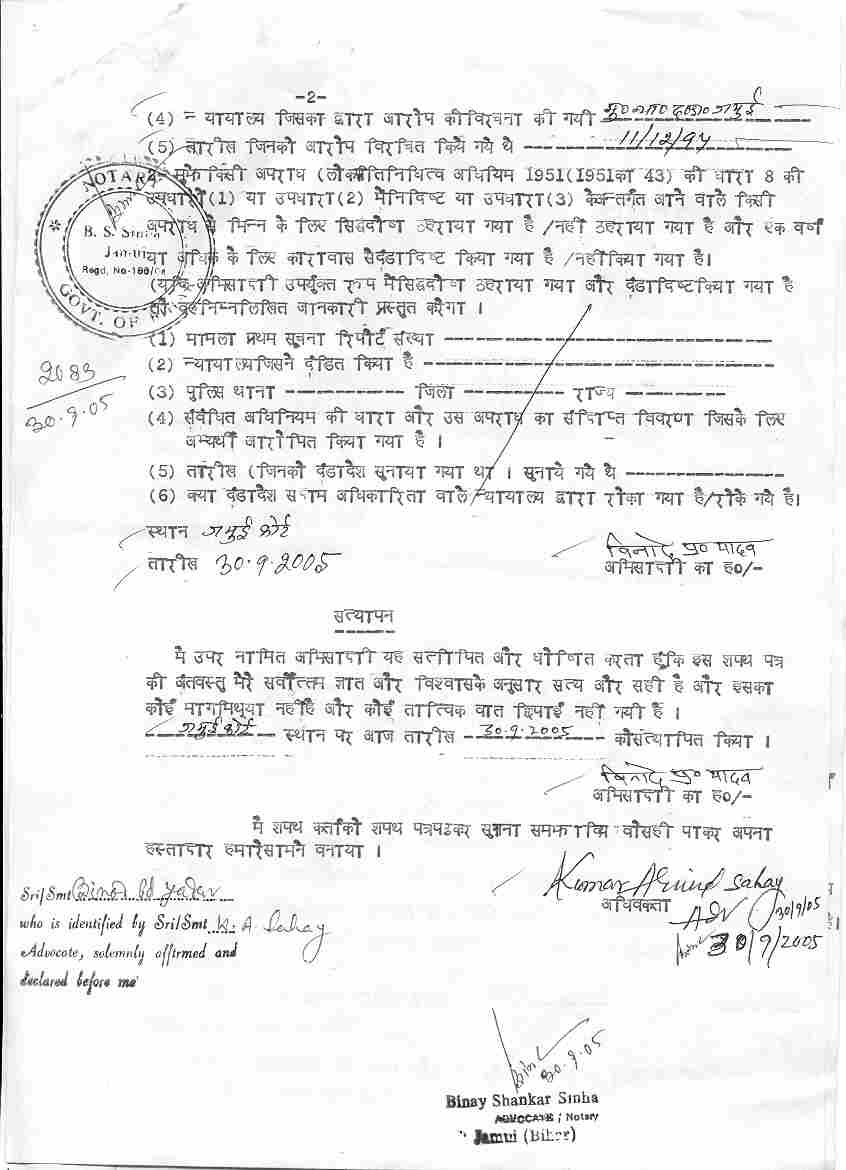 -2-
(4) न्यायालय जिसका द्वारा आरोप की विरचना की गयी मु० न्या० दण्डा० जमुई
(5) तारीख जिनको आरोप विरचित किये गये थे ------- 11/12/97
2- मुझे किसी अपराध (लोक प्रतिनिधित्व अधिनियम 1951(1951का 43) की धारा 8 की
उपधारा(1) या उपधारा(2) मैनिदिष्ट या उपधारा(3) केअन्तर्गत आने वाले किसी
अपराध से भिन्न के लिए सिद्धदोष ठहराया गया है /नहीं ठहराया गया है और एक वर्ष
या अधिक के लिए कारावास सेदंडादिष्ट किया गया है /नहींकिया गया है।
(यदि अभिसाक्षी उपर्युक्त रूप मेंसिद्धदोष ठहराया गया और दंडादिष्टकिया गया है
तो वह निम्नलिखित जानकारी प्रस्तुत करेगा ।
NOTARY
B. S. Sinha
Jamui
Regd. No-186/
GOVT. OF
2083
30.9.05
(1) मामला प्रथम सूचना रिपोर्ट संख्या -------
(2) न्यायालयजिसने दंडित किया है -------
(3) पुलिस थाना ------- जिला ------- राज्य -------
(4) संबंधित अधिनियम की धारा और उस अपराध का संक्षिप्त विवरण जिसके लिए
अभ्यर्थी आरोपित किया गया है ।
(5) तारीख (जिनको दंडादेश सुनाया गया था । सुनाये गये थे -------
(6) क्या दंडादेश सक्षम अधिकारिता वाले न्यायालय द्वारा रोका गया है/रोके गये है।
स्थान जमुई कोर्ट
तारीख 30.9.2005
विनोद प्र० यादव
अभिसाक्षी का ह०/-
सत्यापन
मै उपर नामित अभिसाक्षी यह सत्यापित और घोषित करता हूंकि इस शपथ पत्र
की अंतवस्तु मेरे सर्वोत्तम ज्ञात और विश्वासके अनुसार सत्य और सही है और इसका
कोई भागमिथ्या नहींहै और कोई तात्विक वात छिपाई नहीं गयी है ।
जमुई कोर्ट स्थान पर आज तारीख -30.9.2005- कोसत्यापित किया ।
विनोद प्र० यादव
अभिसाक्षी का ह०/-
मै शपथ कर्ताको शपथ पत्रपढकर सुनाना समझाविया वोसही पाकर अपना
हस्ताक्षर हमारेसामने वनाया ।
Kumar Arvind Sahay
अधिवक्ता
Adv 30/9/05
30/9/2005
Sri/Smt Binod Pd Yadav
who is identified by Sri/Smt K. A. Sahay
Advocate, solemnly affirmed and
declared before me
30.9.05
Binay Shankar Sinha
ADVOCATE ; Notary
Jamui (Bihar)